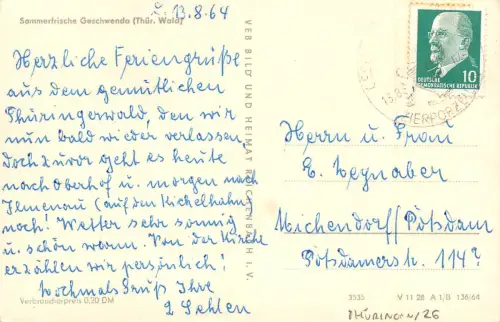 Sommerfrische Geschwenda (Thür. Wald)
13.8.64
Herzliche Feriengrüße
aus dem gemütlichen
Thüringerwald, den wir
nun bald wieder verlassen.
Doch zuvor geht es heute
nach Oberhof u. morgen nach
Ilmenau (auf den Kickelhahn
noch! Wetter sehr sonnig
u. schön warm. Von der Kirche
erzählen wir persönlich!
Nochmals Gruß Ihre
2 Sehlen
Verbraucherpreis 0,20 DM
VEB BILD UND HEIMAT REICHENBACH I. V.
DEUTSCHE
DEMOKRATISCHE REPUBLIK
10
Herrn u. Frau
E. Wegnaber
Michendorf/Potsdam
Potsdamerstr. 114?
3535 V 11 28 A 1/B 136/64
THÜRINGEN/26